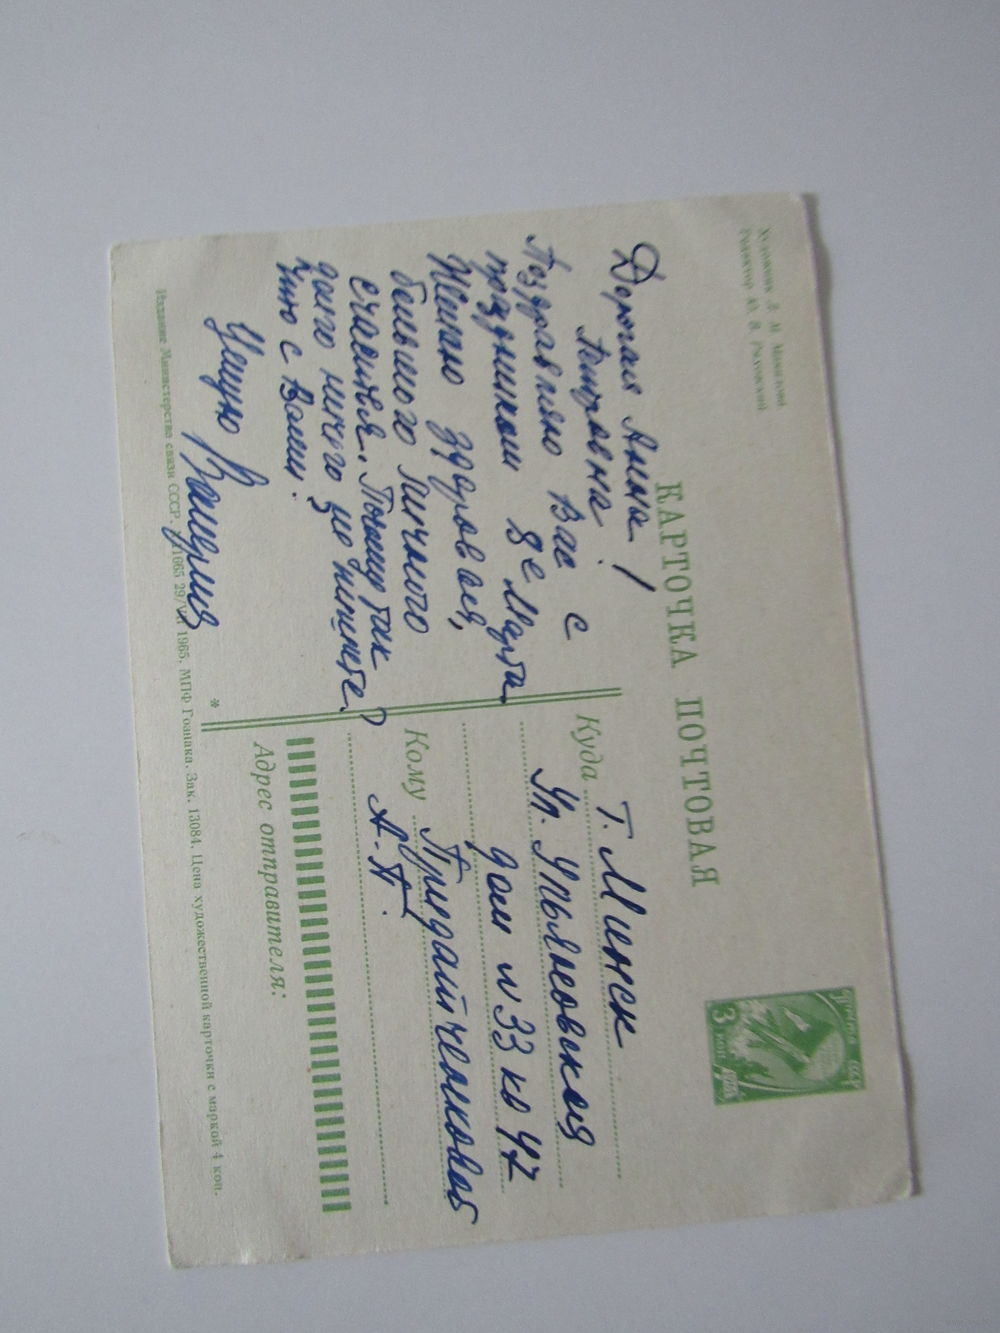 Художник Л. М. Манилова
Редактор Ю. В. Ряховский
КАРТОЧКА ПОЧТОВАЯ
ПОЧТА СССР
3 КОП
Дорогая Анна
Петровна!
Поздравляю Вас с
праздником 8е Марта
Желаю здоровья,
большого личного
счастья. Почему так
долго ничего не пишете?
что с Вами.
Целую Валерия
Куда г. Минск
ул. Ульяновская
дом N 33 кв 47
Кому Придайчениковой
А. П.
Адрес отправителя:
Издание Министерства связи СССР. 29/VII 1965. МПФ Гознака. Зак. 13084. Цена художественной карточки с маркой 4 коп.
*